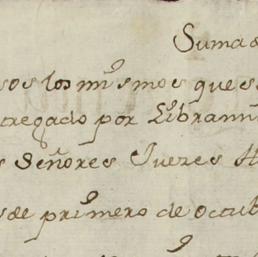 Suma d
sos los mismos que se
tregado por Libram
s Señores Jueces H
sde primero de octub